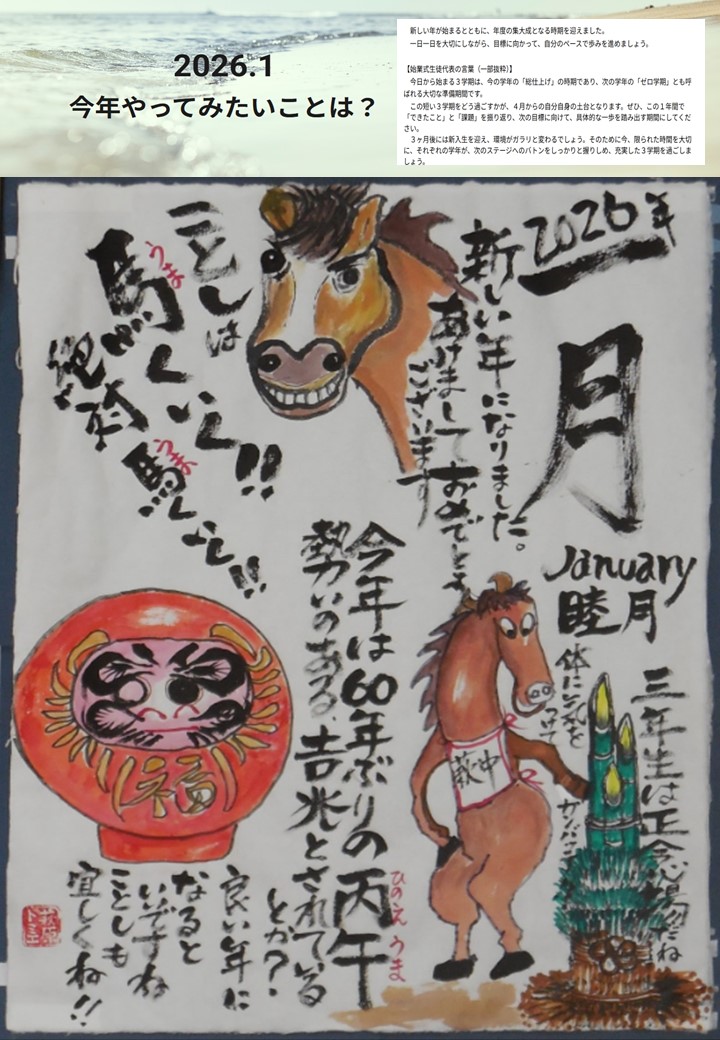 2026.1
今年やってみたいことは？
新しい年が始まるとともに、年度の集大成となる時期を迎えました。
一日一日を大切にしながら、目標に向かって、自分のペースで歩みを進めましょう。
【始業式生徒代表の言葉（一部抜粋）】
今日から始まる３学期は、今の学年の「総仕上げ」の時期であり、次の学年の「ゼロ学期」とも呼
ばれる大切な準備期間です。
この短い３学期をどう過ごすかが、４月からの自分自身の土台となります。ぜひ、この１年間で
「できたこと」と「課題」を振り返り、次の目標に向けて、具体的な一歩を踏み出す期間にしてくだ
さい。
３ヶ月後には新入生を迎え、環境がガラリと変わるでしょう。そのために今、限られた時間を大切
に、それぞれの学年が、次のステージへのバトンをしっかりと握りしめ、充実した３学期を過ごしま
しょう。
2026年
一月
January
睦月
新しい年になりました。
あけましておめでとう
ございます
ことしは
馬くいく!!
うま
絶対
馬くいく!!
うま
三年生は正念場だね
体に気を
つけて
ガンバ
萩中
今年は60年ぶりの丙午
ひのえうま
勢いのある、吉兆とされている
とか？
良い年に
なると
いいですね
ことしも
宜しくね!!
福